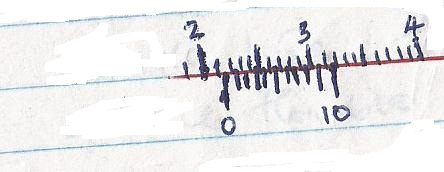 2 3 4
0 10